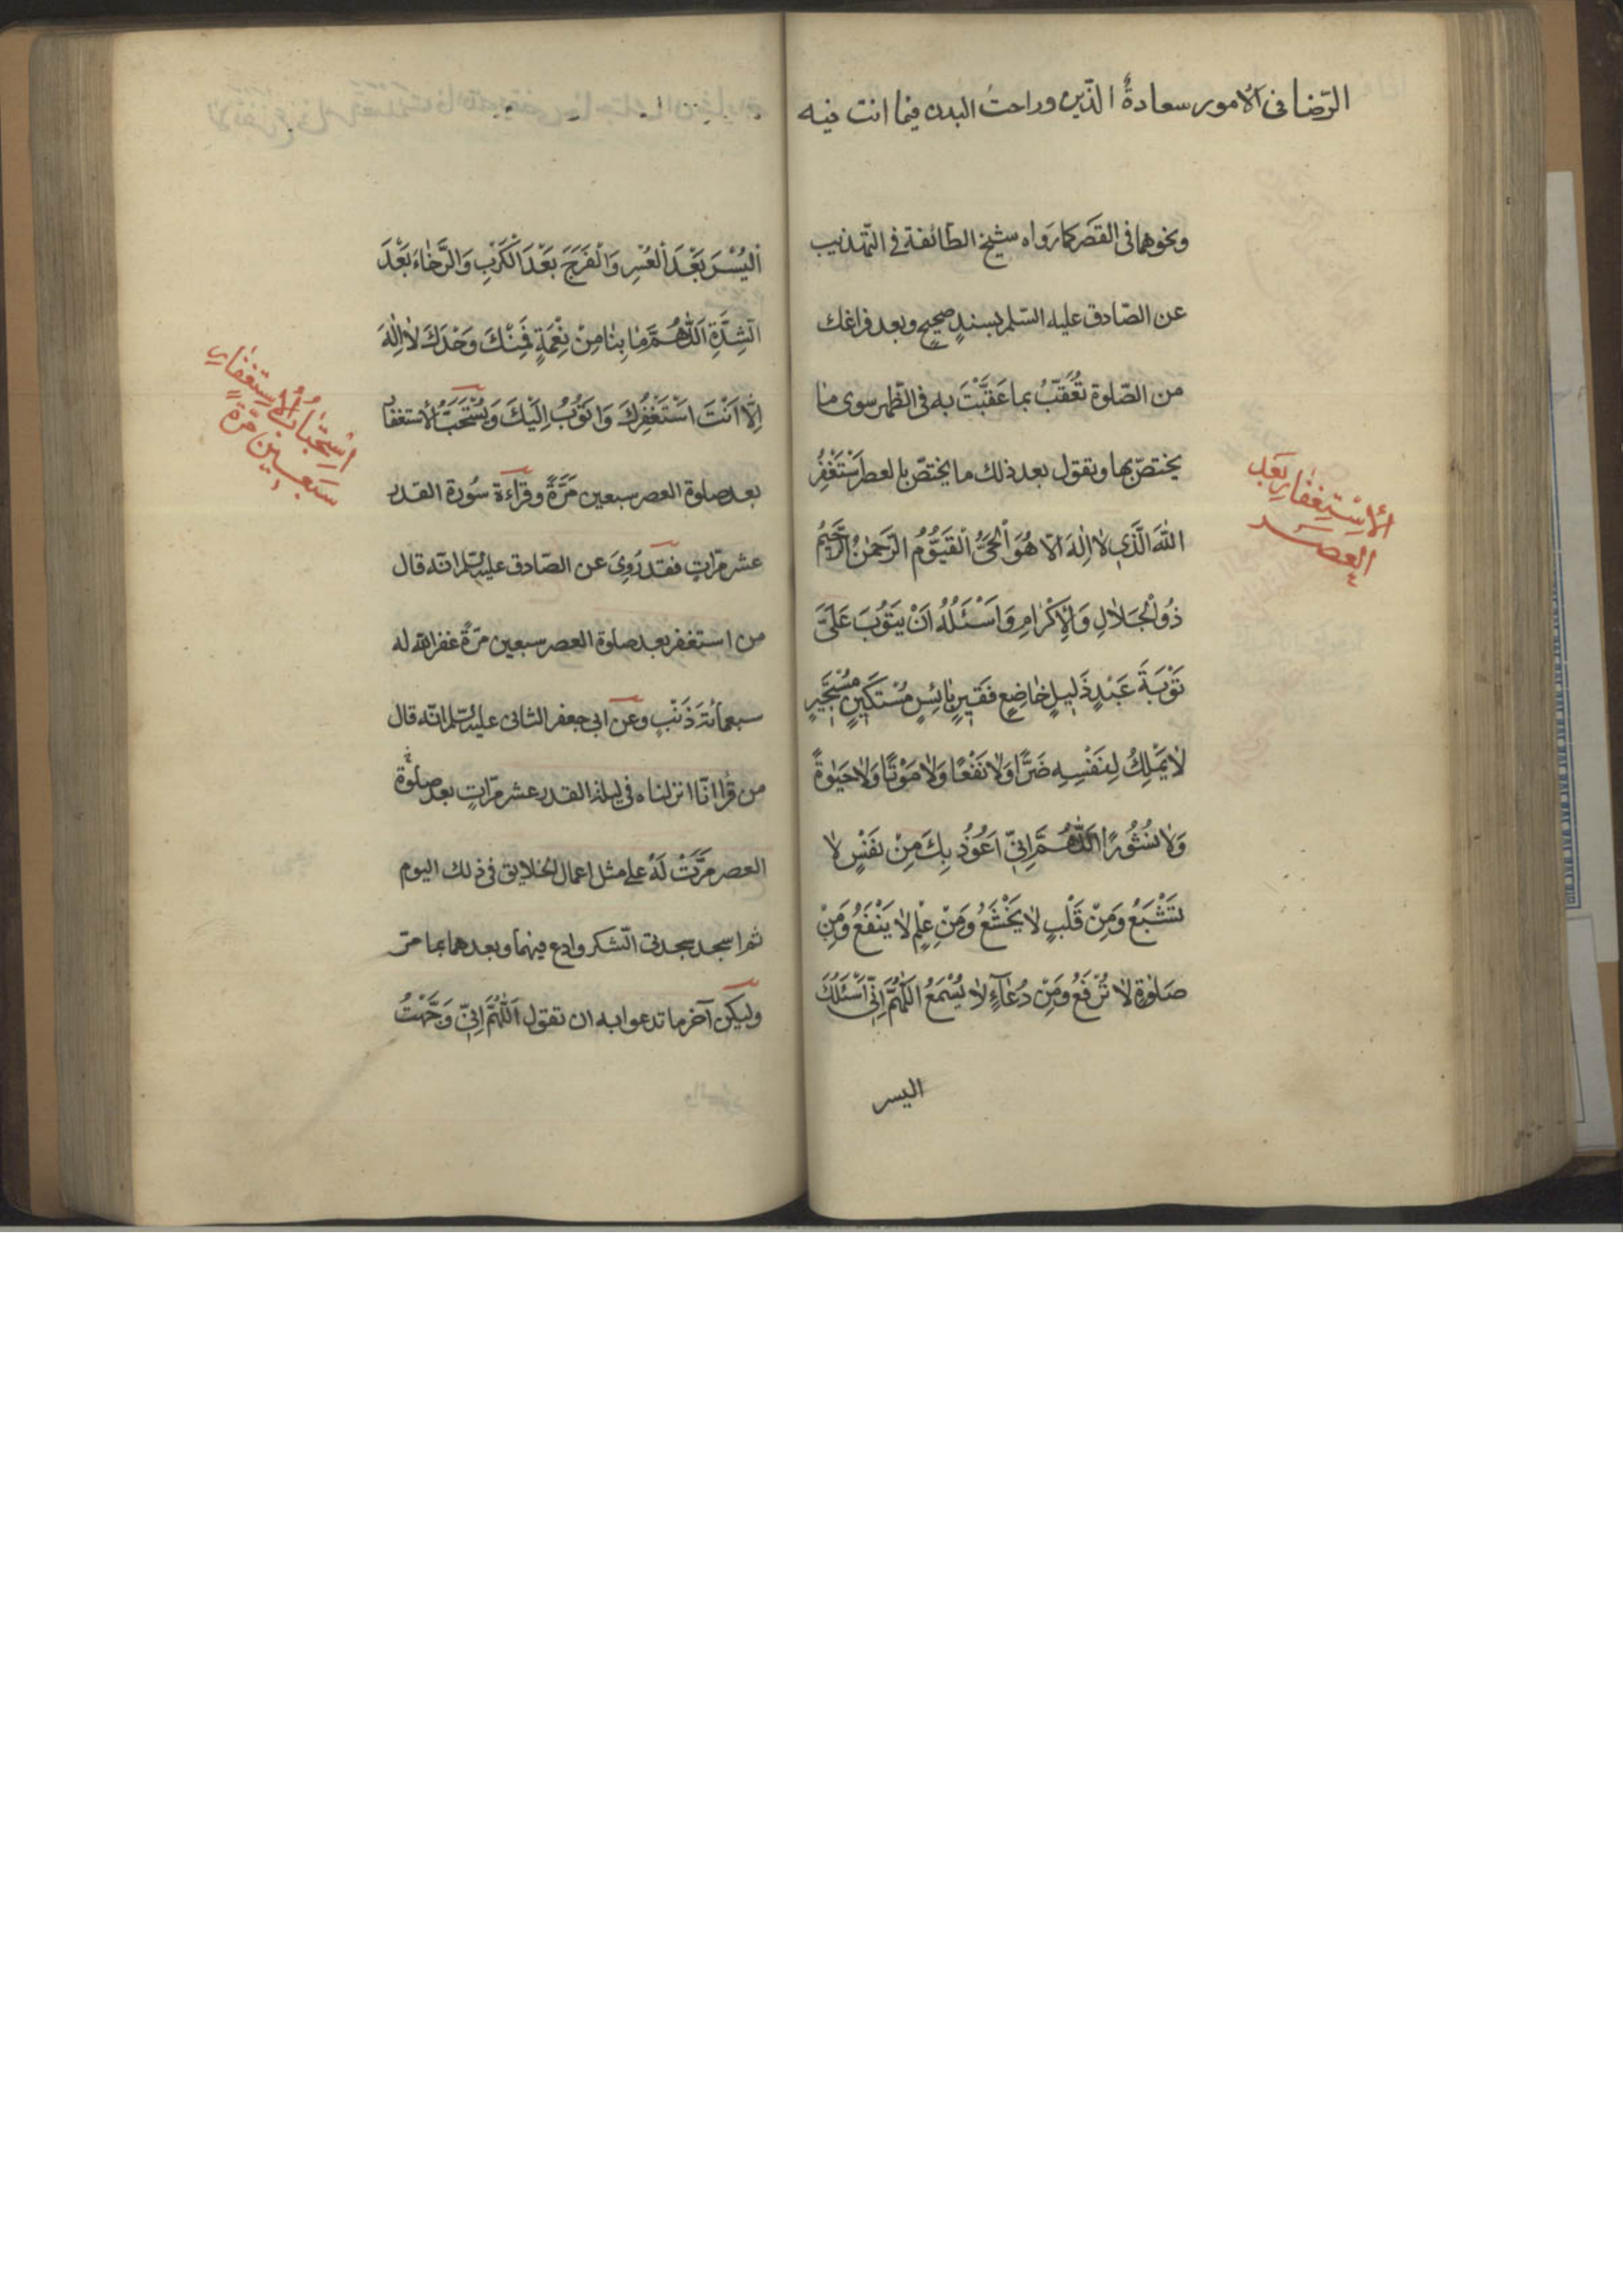 الرّضا فى الامور سعادةُ الدّين وراحتُ البدن فيما انت فيه
ونحوهما فى القصَر كما رَواه شيخ الطائفة فى التّهذيب
عن الصّادق عليه السّلم بسندٍ صحيحٍ وبعد فراغك
من الصّلوة تُعَقّبُ بما عَقَّبْتَ به فى الظّهر سوى ما
يختصّ بها وتقول بعد ذلك ما يختصّ بالعصر اَسْتَغْفِرُ
اللهَ الَّذى لا اِلهَ الّا هُوَ الْحَىُّ الْقَيُّومُ الرَّحمٰنُ الرَّحيمُ
ذُو الْجَلالِ وَالْاِكْرامِ وَاَسْئَلُهُ اَنْ يَتُوبَ عَلَىَّ
تَوْبَةَ عَبْدٍ ذَليلٍ خاضِعٍ فَقيرٍ بائِسٍ مُسْتَكينٍ مُسْتَجيرٍ
لا يَمْلِكُ لِنَفْسِهِ ضَرًّا وَلا نَفْعًا وَلا مَوْتًا وَلا حَيٰوةً
وَلا نُشُورًا اَللّٰهُمَّ اِنّى اَعُوذُ بِكَ مِنْ نَفْسٍ لا
تَشْبَعُ وَمِنْ قَلْبٍ لا يَخْشَعُ وَمِنْ عِلْمٍ لا يَنْفَعُ وَمِنْ
صَلوةٍ لا تُرْفَعُ وَمِنْ دُعآءٍ لا يُسْمَعُ اَللّٰهُمَّ اِنّى اَسْئَلُكَ
اليسر
الْاِسْتِغْفارِ بَعْدَ
العصر
اَلْيُسْرَ بَعْدَ الْعُسْرِ وَالْفَرَجَ بَعْدَ الْكَرْبِ وَالرَّخاءَ بَعْدَ
الشِّدَّةِ اَللّٰهُمَّ ما بِنا مِنْ نِعْمَةٍ فَمِنْكَ وَحْدَكَ لا اِلٰهَ
اِلّا اَنْتَ اَسْتَغْفِرُكَ وَاَتُوبُ اِلَيْكَ وَيُسْتَحَبُّ الْاستغفار
بعد صلوة العصر سبعين مَرَّةً وقراءة سُورة القدر
عشر مرّاتٍ فقد رُوِىَ عن الصّادق عليه السّلم انّه قال
من استغفر بعد صلوة العصر سبعين مرّةً غفر الله له
سبعمائة ذَنْبٍ وعن ابى جعفر الثانى عليه السّلم انّه قال
من قرأ انّا انزلناه فى ليلة القدر عشر مرّاتٍ بعد صلوة
العصر مَرَّتْ لَهُ على مثل اعمال الخلايق فى ذلك اليوم
ثم اسجد سجدتى الشّكر وادع فيهما وبعدهما بما مرّ
وليكن آخر ما تدعوا به ان تقول اَللّٰهُمَّ اِنّى وَجَّهْتُ
اِسْتِحْبابُ الْاِسْتِغْفارِ
سَبْعين مَرّة